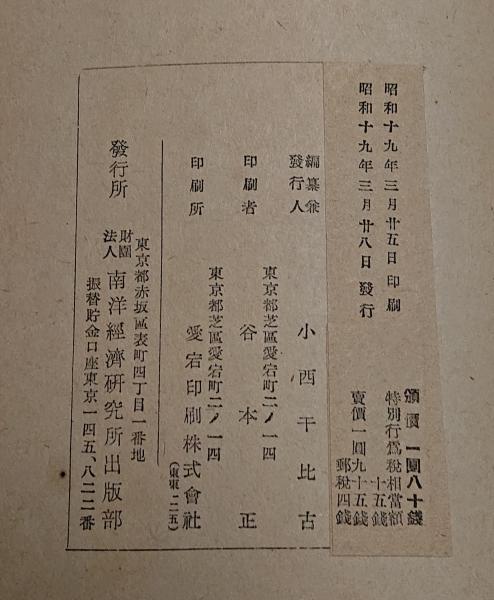 昭和十九年三月廿五日印刷
昭和十九年三月廿八日發行
頒價一圓八十錢
特別行爲税相當額
十五錢
賣價一圓九十五錢
郵税四錢
編纂兼
發行人
小西干比古
東京都芝區愛宕町二ノ一四
印刷者
谷本正
東京都芝區愛宕町二ノ一四
印刷所
愛宕印刷株式會社
(東東二二五)
東京都赤坂區表町四丁目一番地
發行所
財團
法人
南洋經濟研究所出版部
振替貯金口座東京一四五、八二二番